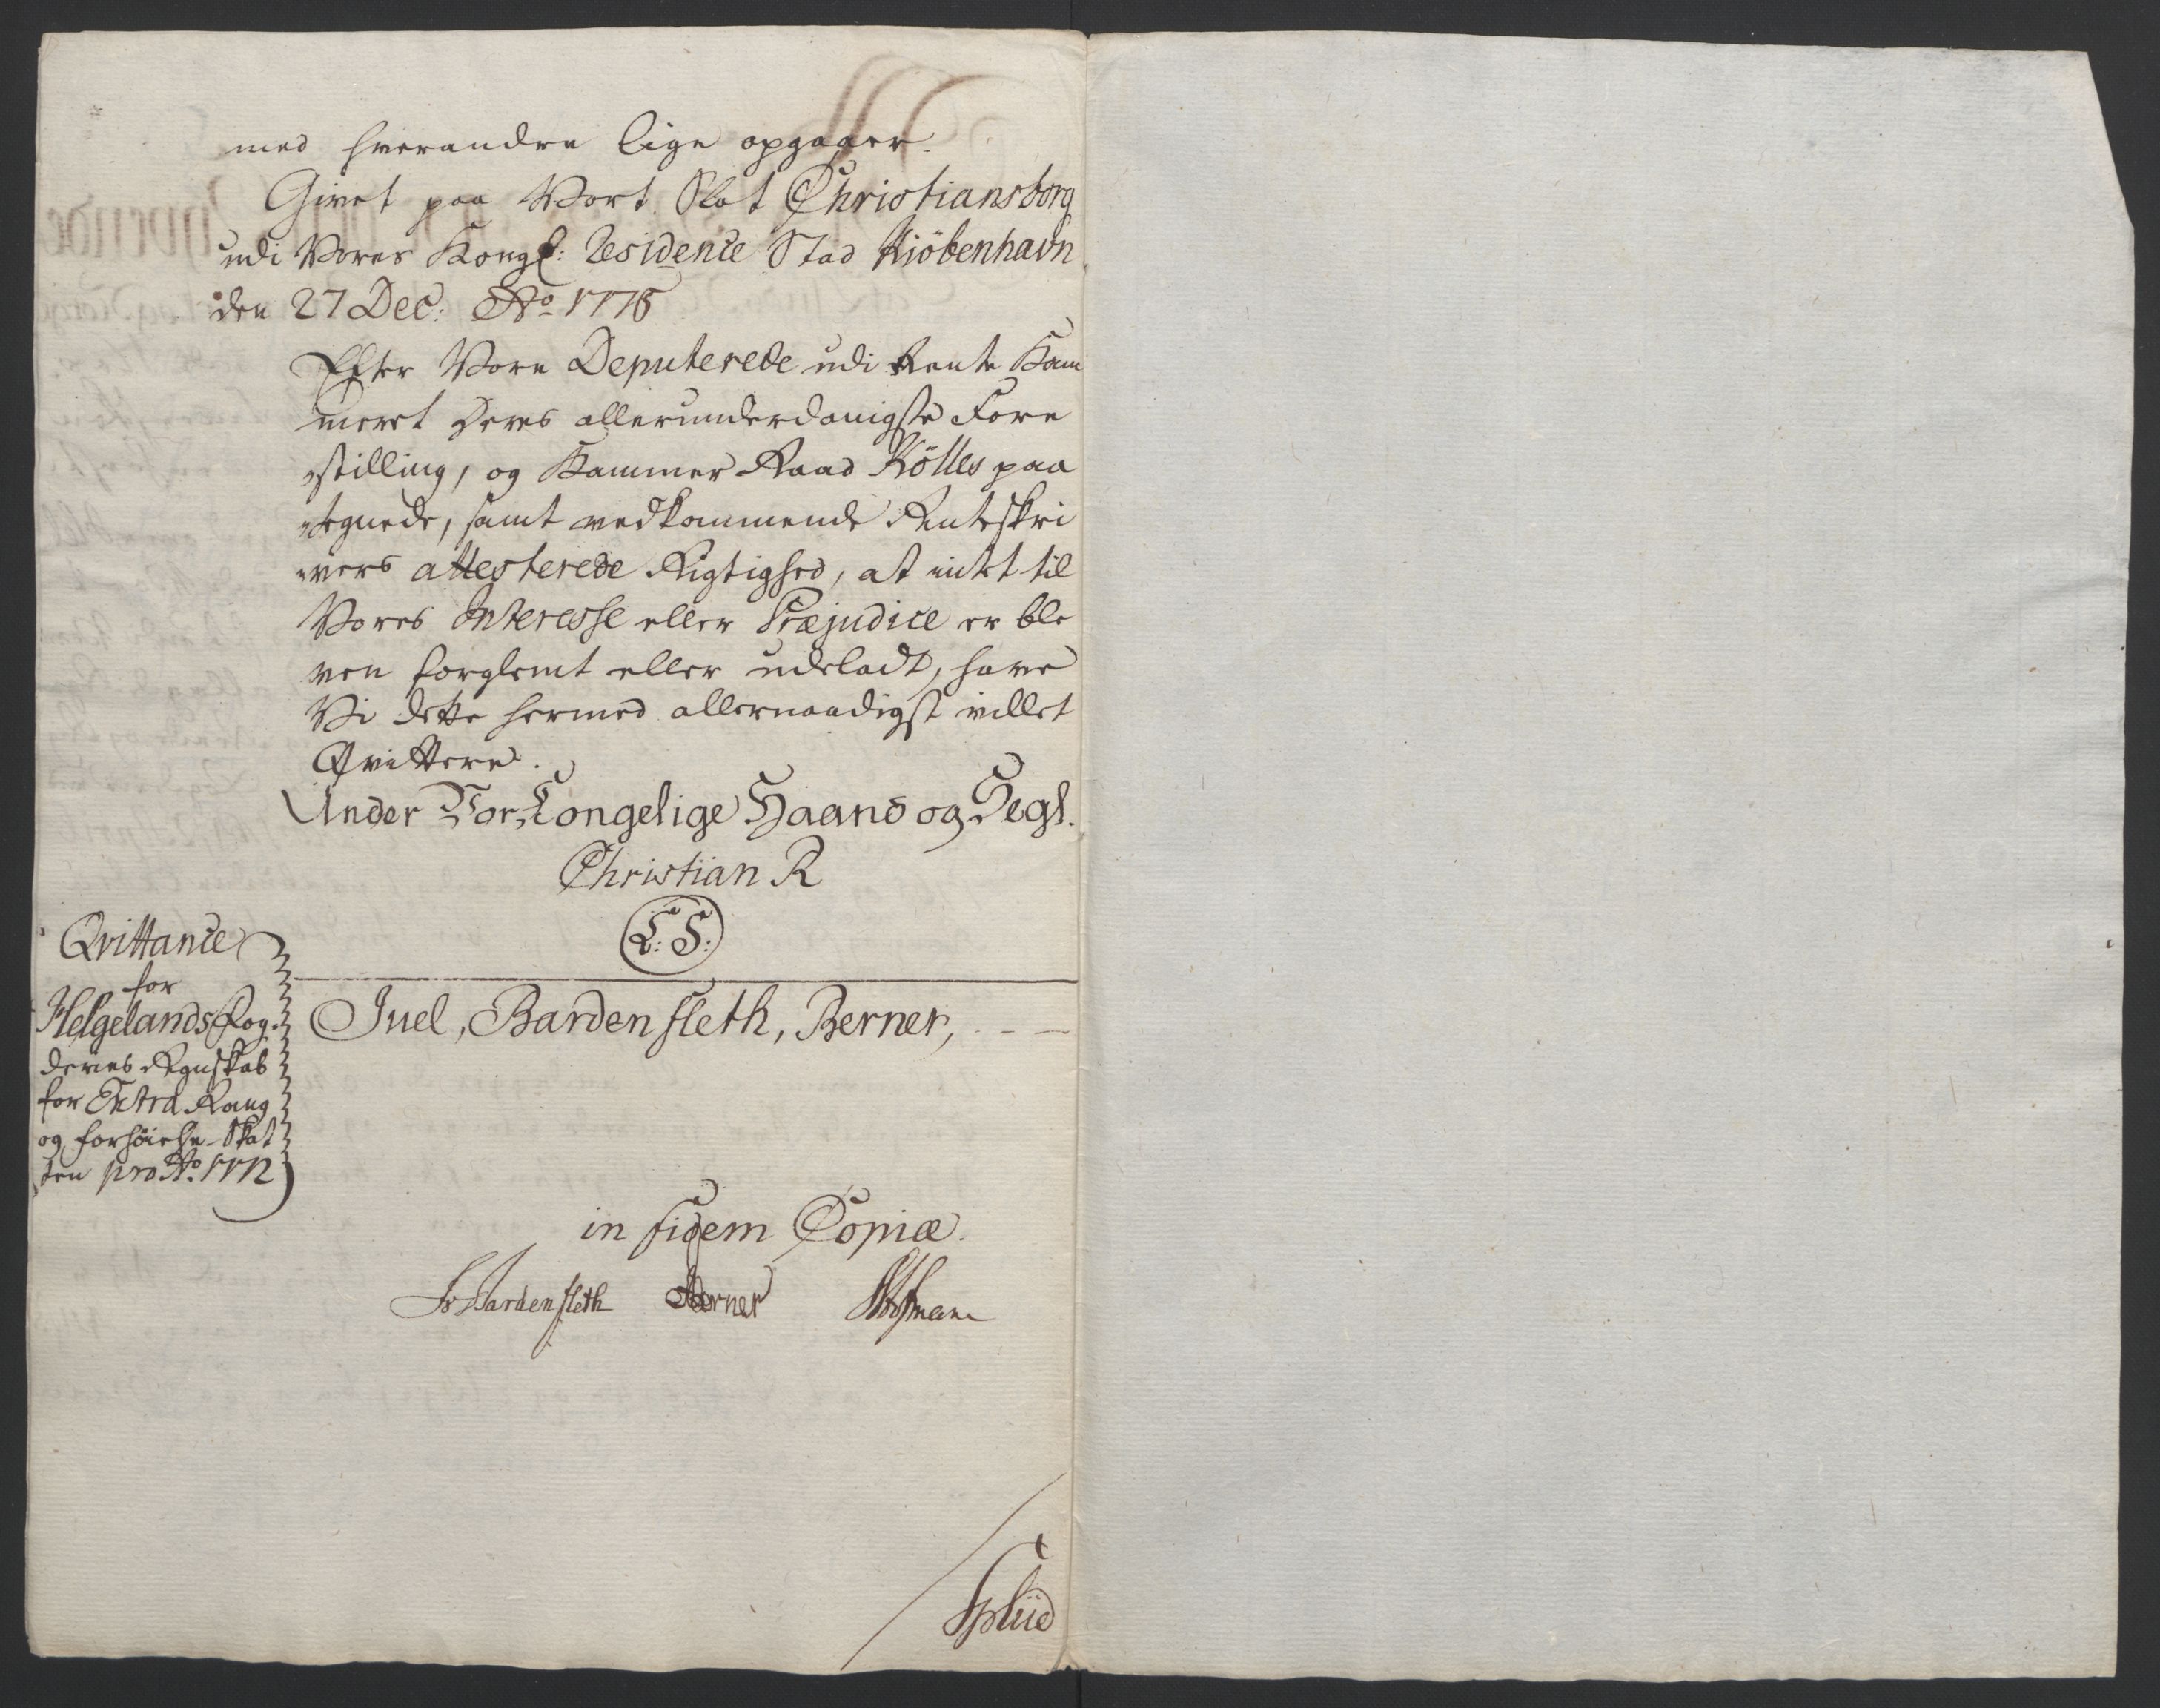 med hverandre lige opgaaer.
Givet paa Vort Slot Christiansborg
udi Vores Kongl: Residence Stad Kiöbenhavn
den 27 Dec: Ao 1775
Efter Vore Deputerede udi Rente Kam
meret Deres allerunderdanigste Fore
stilling, og Kammer Raad Kölles paa
tegnede, samt vedkommende Renteskri
vers attesterede Rigtighed, at intet til
Vores Interesse eller Præjudice er ble
ven forglemt eller udeladt, have
Vi dette hermed allernaadigst villet
Qvittere.
Under Vor Kongelige Haand og Segl.
Christian R
L: S:
Juel, Bardenfleth, Berner,
Qvittance
for
Helgelands Fog-
deries Regnskab
for Extra Rang
og Forhöielse-Skat
ten pro Ao. 1772
in fidem Copiæ.
Bardenfleth Berner
Splüd